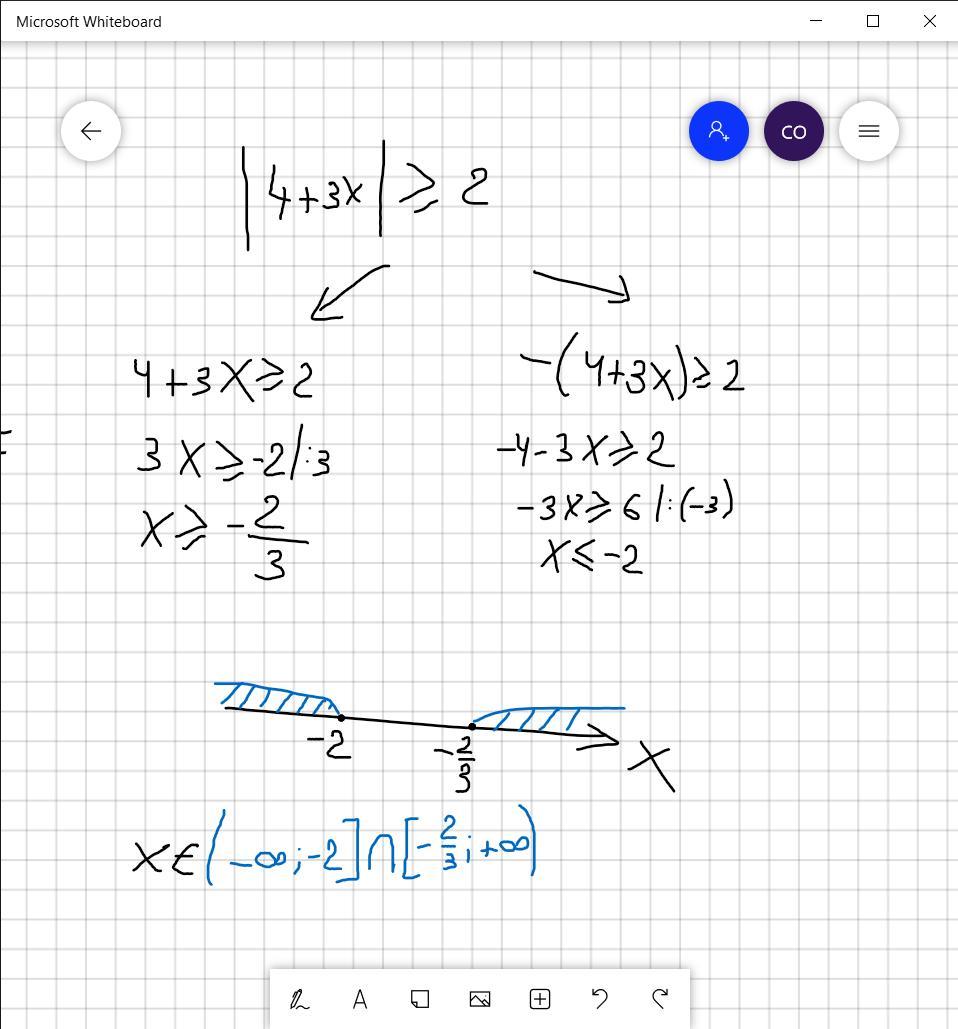 Microsoft Whiteboard
CO
|4+3x| ⩾ 2
4+3x⩾2
3x⩾-2/:3
x⩾-2/3
-(4+3x)⩾2
-4-3x⩾2
-3x⩾6 /:(-3)
x⩽-2
-2
-2/3
x
x∈(-∞;-2]∩[-2/3;+∞)
A